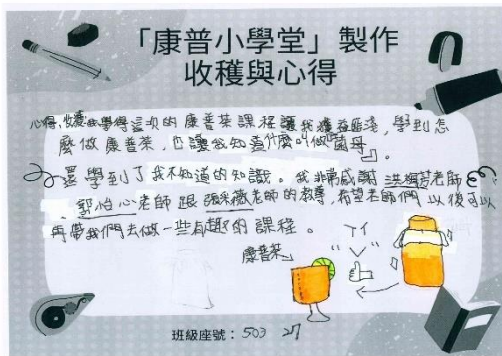 「康普小學堂」製作
收穫與心得
心得、收穫:我覺得這次的康普茶課程讓我獲益匪淺,學到怎
麼做康普茶,也讓我知道什麼叫做『菌母』。
還學到了我不知道的知識。我非常感謝洪老師
、郭怡心老師跟張老師的教導,希望老師們以後可以
再帶我們去做一些有趣的課程。
康普茶
班級座號:503 27